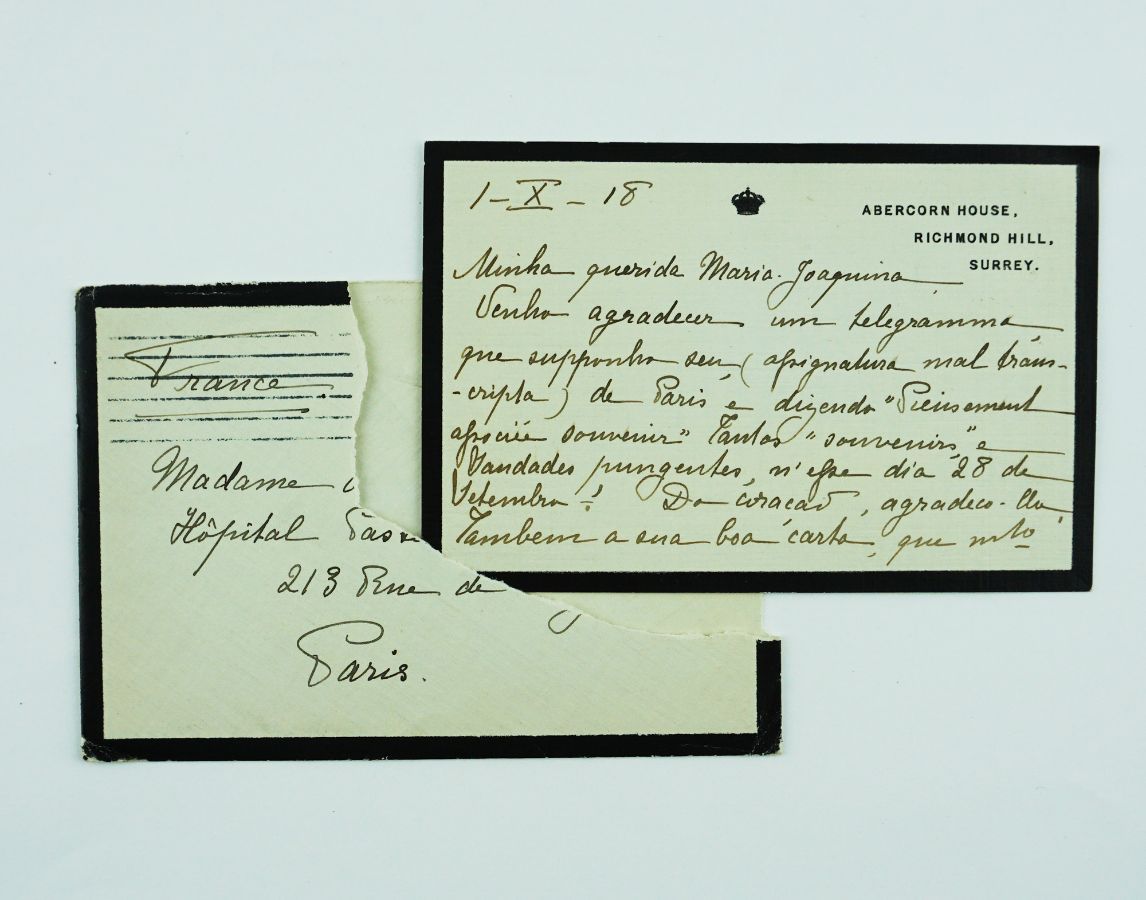 1-X-18
ABERCORN HOUSE,
RICHMOND HILL,
SURREY.
Minha querida Maria Joaquina
Venho agradecer um telegramma
que supponho seu (assignatura mal trans-
-cripta) de Paris e dizendo "Pieusement
associée souvenir" Tantos "souvenirs" e
Saudades pungentes, n'esse dia 28 de
Setembro! Do coracaõ, agradeco-lho
Tambem a sua boa carta, que mto
France
Madame
Hôpital
213 Rue de
Paris.